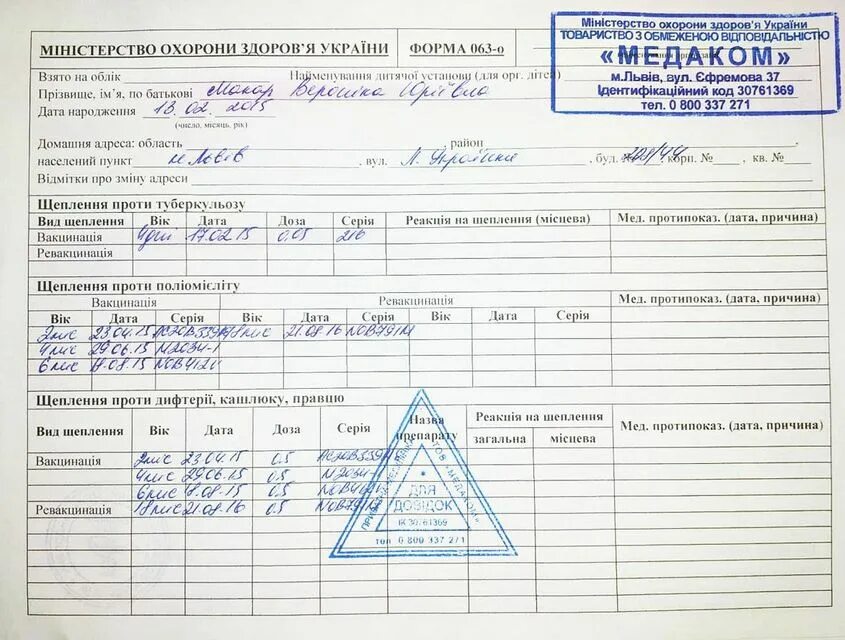 МІНІСТЕРСТВО ОХОРОНИ ЗДОРОВ'Я УКРАЇНИ ФОРМА 063-о
Міністерство охорони здоров'я України
ТОВАРИСТВО З ОБМЕЖЕНОЮ ВІДПОВІДАЛЬНІСТЮ
«МЕДАКОМ»
м.Львів, вул. Єфремова 37
Ідентифікаційний код 30761369
тел. 0 800 337 271
Взято на облік Найменування дитячої установи (для орг. дітей)
Прізвище, ім'я, по батькові Макар Вероніка Юріївна
Дата народження 13.02.2015
(число, місяць, рік)
Домашня адреса: область район
населений пункт м Львів , вул. Л. Українки , буд. № корп. № , кв. №
Відмітки про зміну адреси
Щеплення проти туберкульозу
Вид щеплення Вік Дата Доза Серія Реакція на щеплення (місцева) Мед. протипоказ. (дата, причина)
Вакцинація 4дні 17.02.15 0,05 216
Ревакцинація
Щеплення проти поліомієліту
Вакцинація Ревакцинація Мед. протипоказ. (дата, причина)
Вік Дата Серія Вік Дата Серія Вік Дата Серія
2міс 23.04.15 18міс 21.08.16 N0B791M
4міс 29.06.15 M2034-1
6міс 18.08.15
Щеплення проти дифтерії, кашлюку, правцю
Вид щеплення Вік Дата Доза Серія Назва препарату Реакція на щеплення Мед. протипоказ. (дата, причина)
загальна місцева
Вакцинація 2міс 23.04.15 0.5
4міс 29.06.15 0.5 M2034-1
6міс 18.08.15 0.5
Ревакцинація 18міс 21.08.16 0.5
ТОВ "МЕДАКОМ"
ДЛЯ
ДОВІДОК
ІК 30761369
тел 0 800 337 271